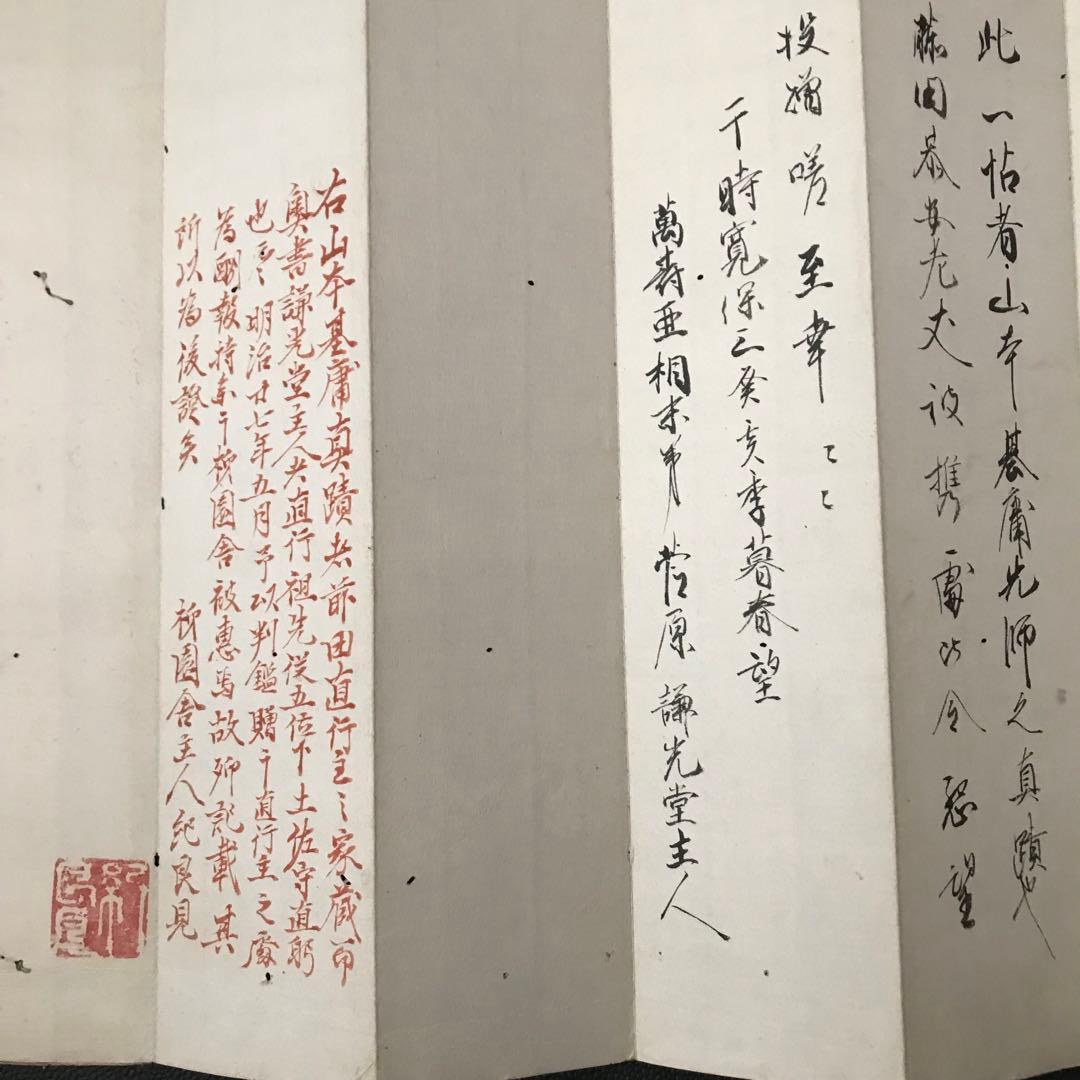 此一帖者山本基庸先師之真蹟也
藤田景安老丈被携處也今懇望
投贈嗟至幸〻〻
干時寛保三癸亥季暮春望
萬壽亜相末男菅原謙光堂主人
右山本基庸真蹟者前田直行主之家蔵而
奥書謙光堂主人者直行祖先従五位下土佐守直躬
也云々明治廿七年五月予以判鑑贈于直行主之處
為酬報特未于柳園舎被惠焉故聊記載其
所以為後證矣
柳園舎主人紀良見